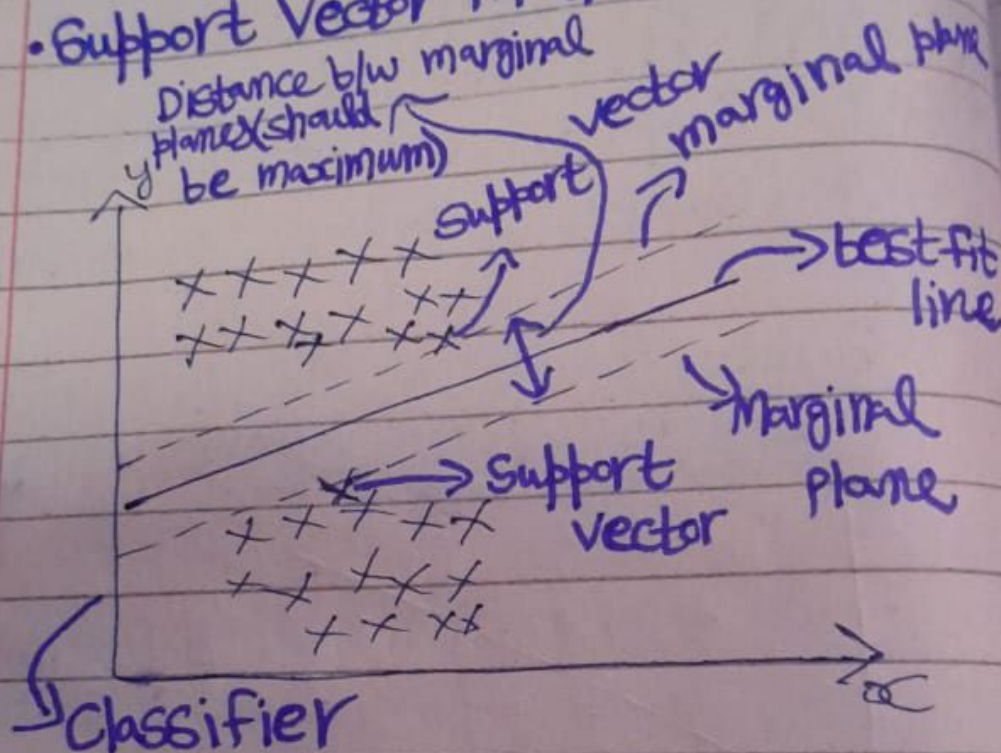 • Support Vector
Distance b/w marginal
planes(should
be maximum)
y
support vector
marginal plane
best fit
line
Marginal
plane
Support
vector
x
Classifier